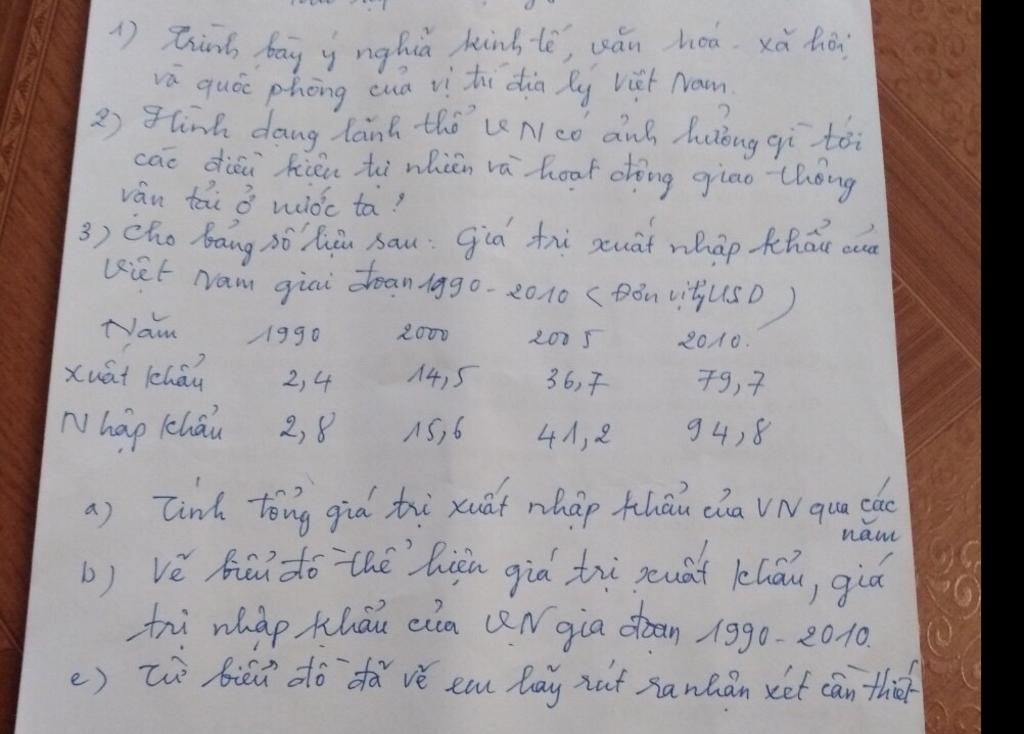 1) Trình bày ý nghĩa kinh tế, văn hoá - xã hội,
và quốc phòng của vị trí địa lý Việt Nam.
2) Hình dạng lãnh thổ VN có ảnh hưởng gì tới
các điều kiện tự nhiên và hoạt động giao thông
vận tải ở nước ta?
3) Cho bảng số liệu sau: Giá trị xuất nhập khẩu của
Việt Nam giai đoạn 1990-2010 (Đơn vị tỷ USD)
Năm 1990 2000 2005 2010.
Xuất khẩu 2,4 14,5 36,7 79,7
Nhập khẩu 2,8 15,6 41,2 94,8
a) Tính tổng giá trị xuất nhập khẩu của VN qua các
năm
b) Vẽ biểu đồ thể hiện giá trị xuất khẩu, giá
trị nhập khẩu của VN gia đoạn 1990-2010.
c) Từ biểu đồ đã vẽ em hãy rút ra nhận xét cần thiết